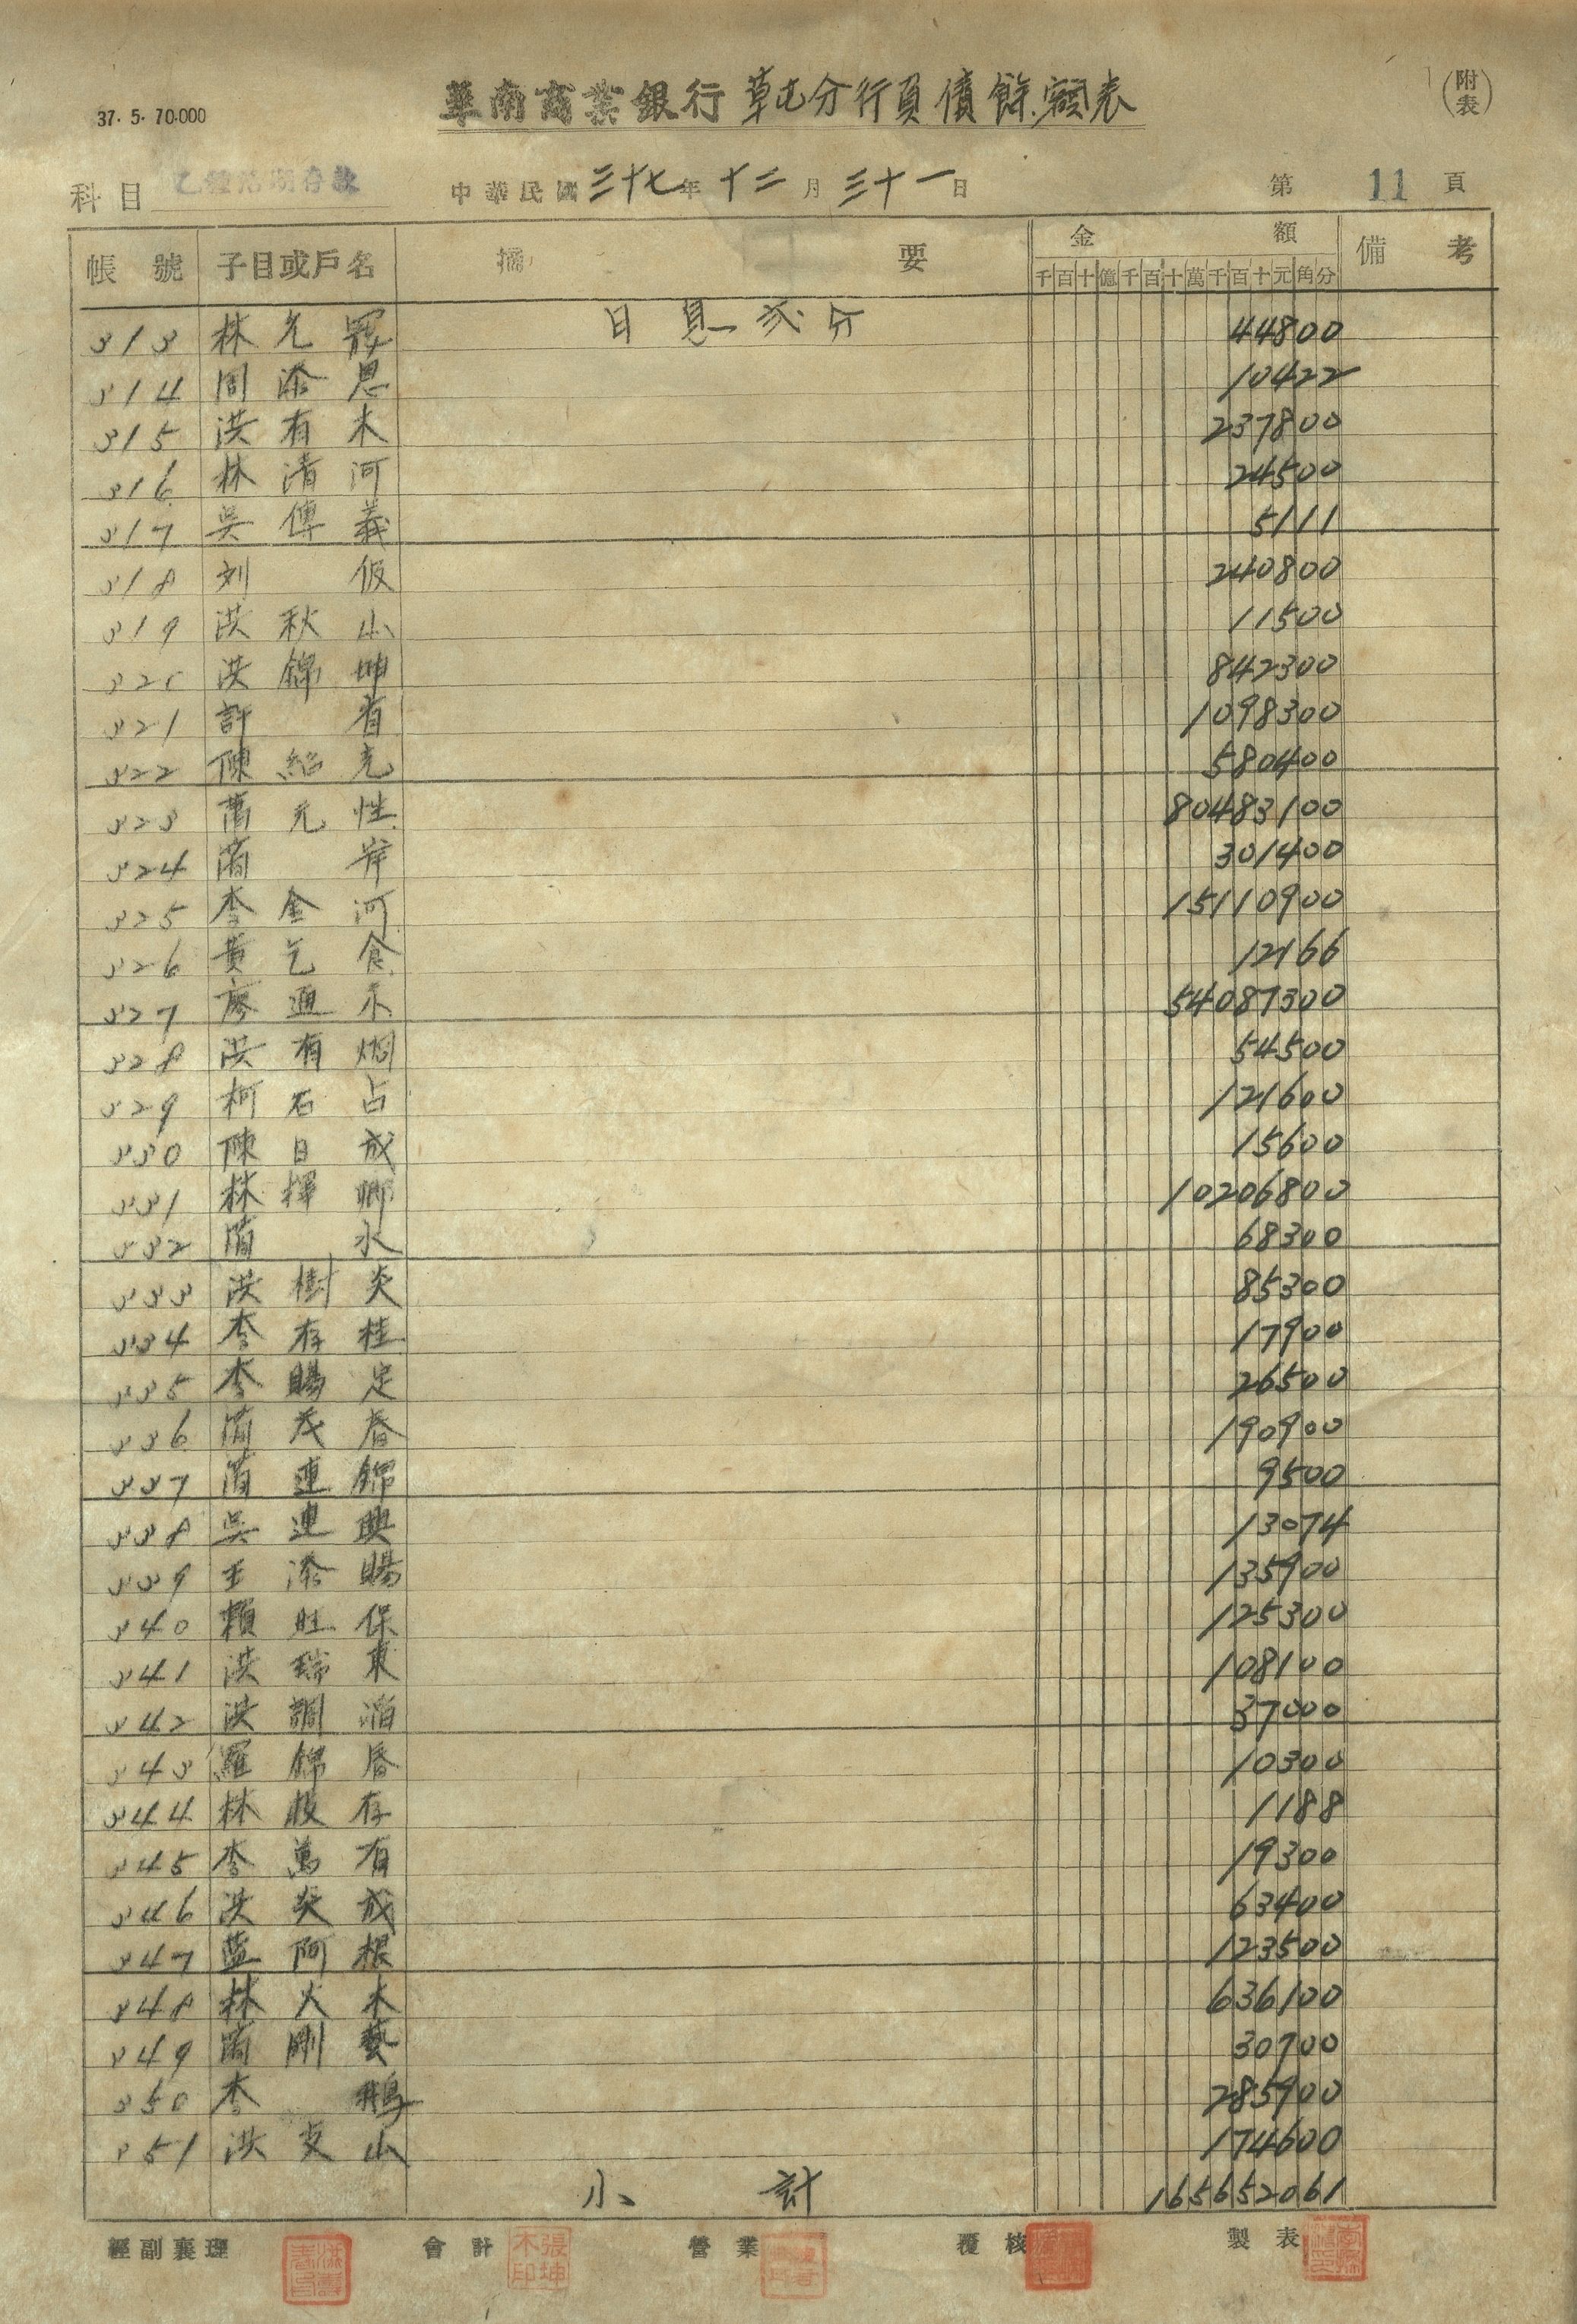 37. 5. 70.000
華南商業銀行草屯分行負債餘額表
(附表)
科目 乙種活期存款 中華民國三十七年十二月三十一日 第11頁
帳號 子目或戶名 摘要 金額 備考
千百十億千百十萬千百十元角分
日息弍分
313 林允 44800
314 周添恩 10422
315 洪有木 237800
316 林清河 24500
317 吳傳義 5111
318 刘 240800
319 洪秋山 11500
320 洪錦坤 842300
321 許省 1098300
322 陳紹克 580400
323 萬元性 80483100
324 蕭 301400
325 李金河 15110900
326 黃乞食 12166
327 廖通 54087300
328 洪有烟 54500
329 柯石占 121600
330 陳日成 15600
331 林揮卿 10206800
332 蕭水 68300
333 洪樹炎 85300
334 李存桂 17900
335 李賜定 26500
336 蕭茂春 190900
337 蕭連錦 9500
338 吳連興 13074
339 王添賜 135900
340 賴旺保 125300
341 洪瑞東 108100
342 洪調 37000
343 羅錦春 10300
344 林枝存 1188
345 李萬有 19300
346 洪炎成 63400
347 藍阿根 123500
348 林火木 636100
349 蕭剛藝 30700
350 李鵝 285900
351 洪支山 174600
小計 165652061
經副襄理 會計 營業 覆核 製表
張坤木印